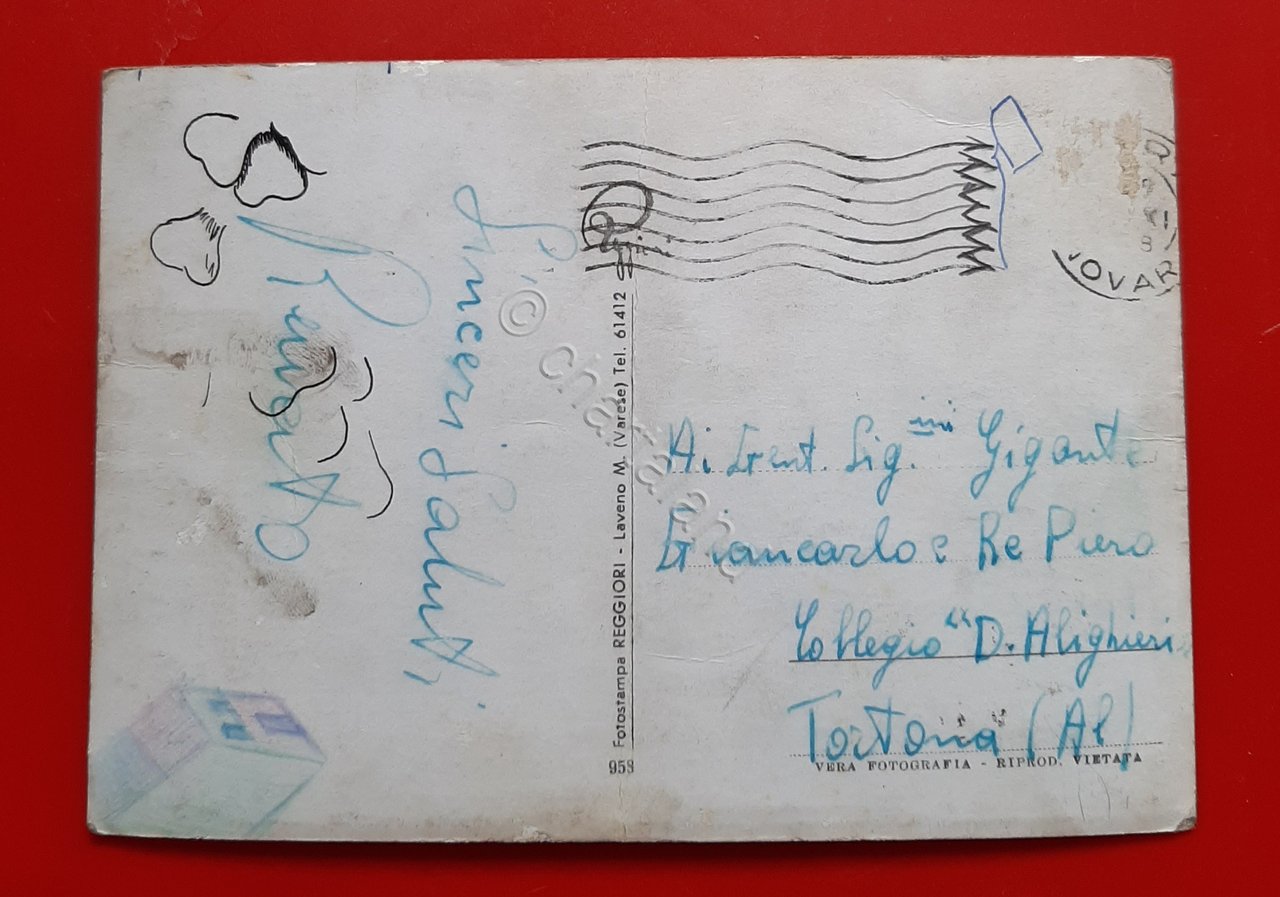 Sinceri Saluti
Renato
Fotostampa REGGIORI - Laveno M. (Varese) Tel. 61412
953
Ai Gent. Sig.mi Gigante
Giancarlo e Re Piero
Collegio "D. Alighieri
Tortona (Al)
VERA FOTOGRAFIA - RIPROD. VIETATA
OVAR